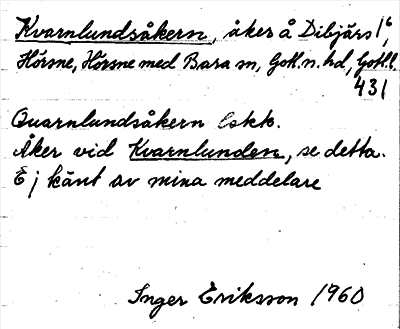 Kvarnlundsåkern, åker å Dibjärs 1⁶,
Hörsne, Hörsne med Bara sn, Gotl. n. hd, Gotl. l.
431
Quarnlundsåkern Eskk.
Åker vid Kvarnlunden, se detta.
Ej känt av mina meddelare
Inger Eriksson 1960